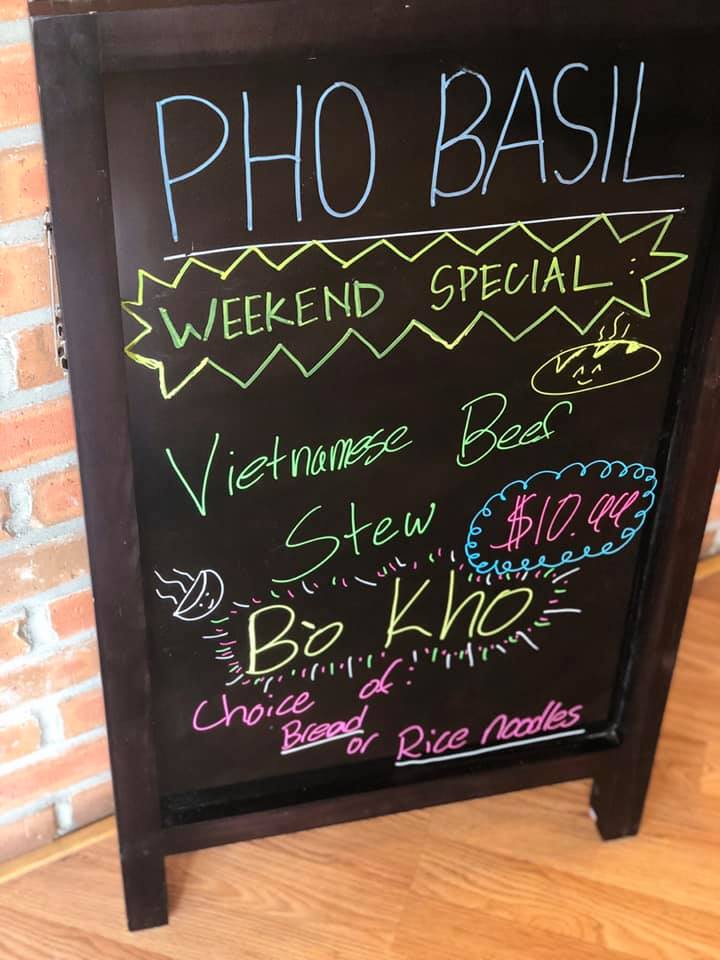 PHO BASIL
WEEKEND SPECIAL :
Vietnamese Beef
Stew $10.99
Bò Kho
Choice of:
Bread
or Rice noodles